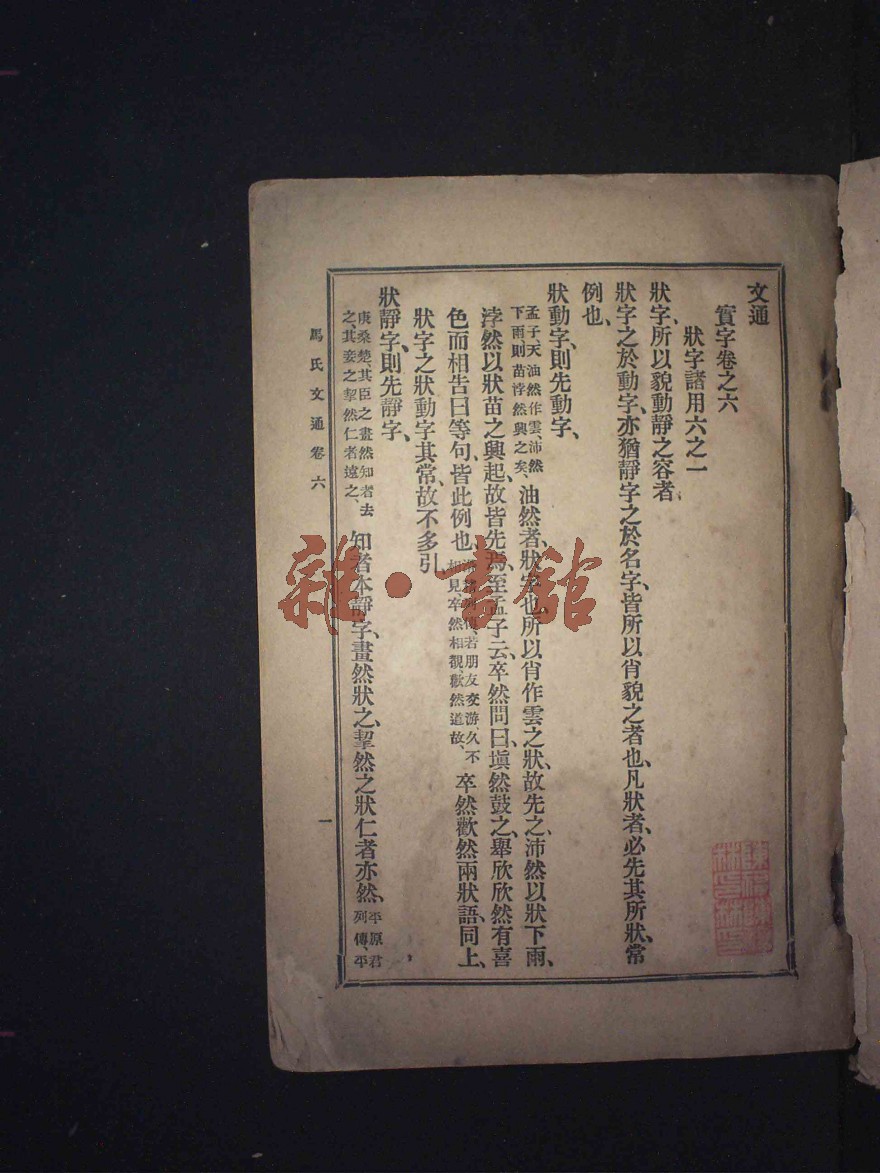 文通
實字卷之六
狀字諸用六之一
狀字、所以貌動靜之容者、
狀字之於動字、亦猶靜字之於名字、皆所以肖貌之者也、凡狀者、必先其所狀、常
例也、
狀動字、則先動字、
孟子、天油然作雲、沛然
下雨、則苗浡然興之矣、
油然者、狀字也、所以肖作雲之狀、故先之、沛然以狀下雨、
浡然以狀苗之興起、故皆先焉、至孟子云、卒然問曰、塡然鼓之、舉欣欣然有喜
色而相告曰等句、皆此例也、
列傳、若朋友交游、久不
相見、卒然相覩、歡然道故、
卒然歡然兩狀語、同上、
狀字之狀動字其常、故不多引、
狀靜字、則先靜字、
庚桑楚、其臣之畫然知者去
之、其妾之挈然仁者遠之、
知者本靜字、畫然狀之、挈然之狀仁者亦然、
平原君
列傳、平
馬氏文通卷六
一
雜·書館